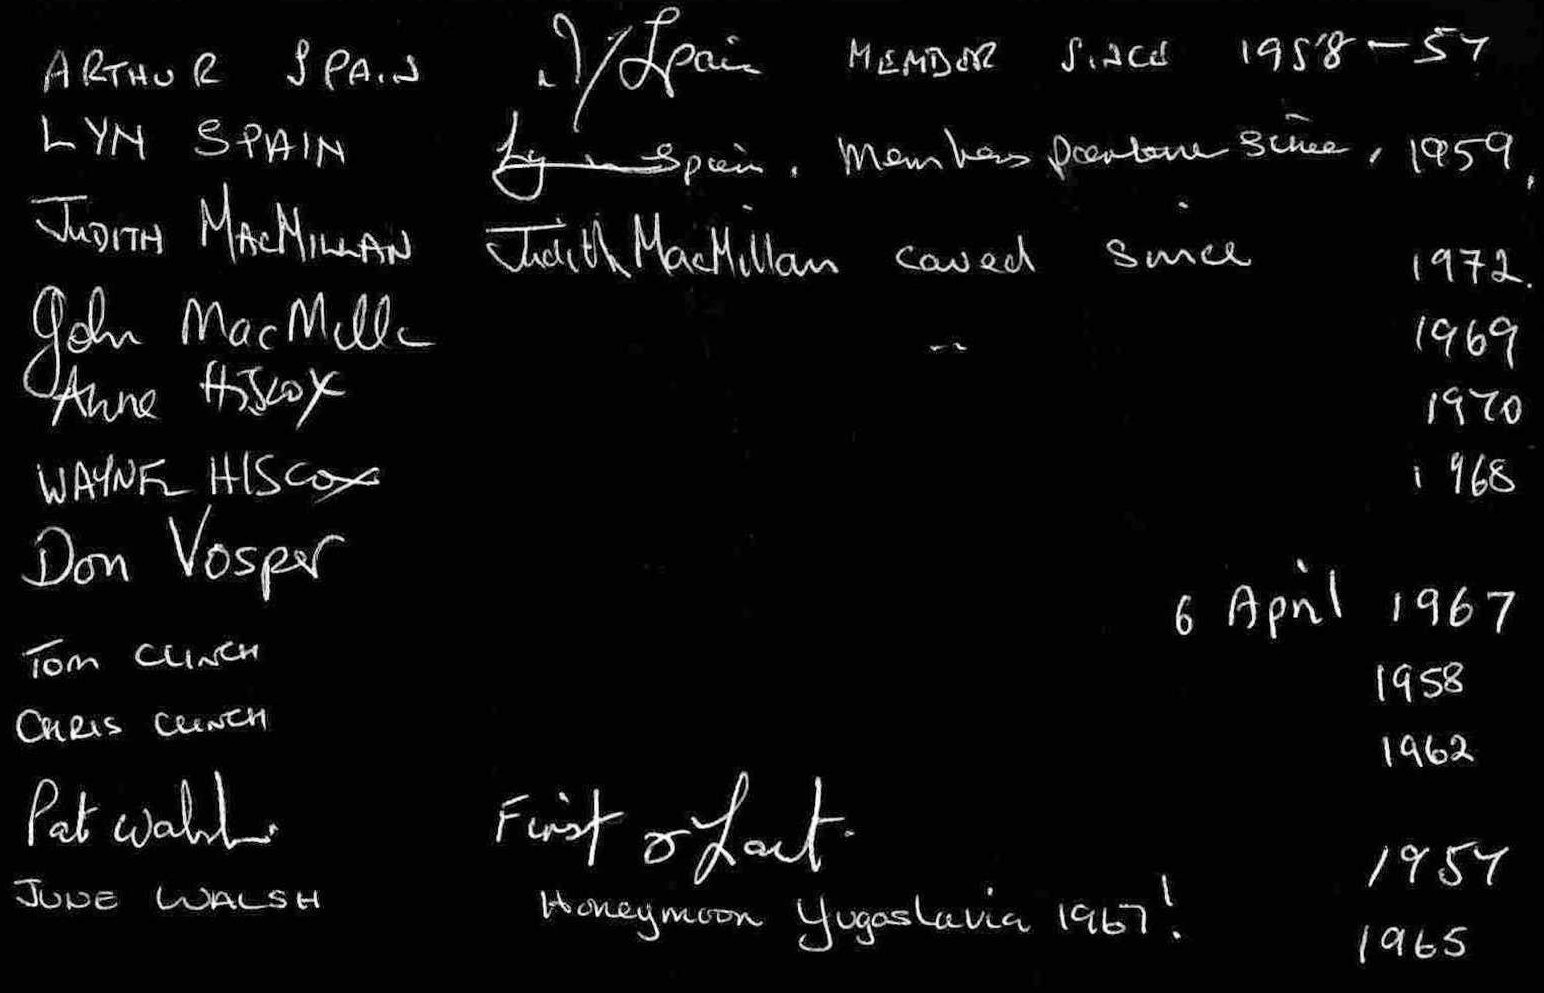 ARTHUR SPAIN Spain MEMBER SINCE 1958-57
LYN SPAIN Lyn Spain. Members since, 1959,
JUDITH MACMILLAN Judith MacMillan caved since 1972.
John MacMilla " 1969
Anne Hiscox 1970
WAYNE HISCOX 1968
Don Vosper 6 April 1967
Tom CLINCH 1958
CHRIS CLINCH 1962
Pat Walsh. First & Last. 1957
JUNE WALSH Honeymoon Yugoslavia 1967! 1965